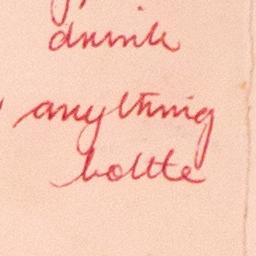 drink
anything
bottle